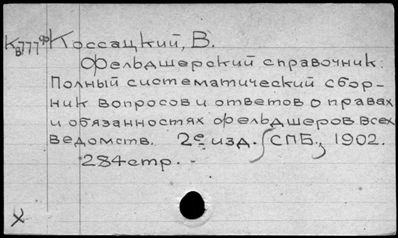 К ф Коссацкий, В.
в 777
Фельдшерский справочник:
Полный систематический сбор-
ник вопросов и ответов о правах
и обязанностях фельдшеров всех
ведомств. 2е изд. СПБ., 1902.
284 стр. -
X